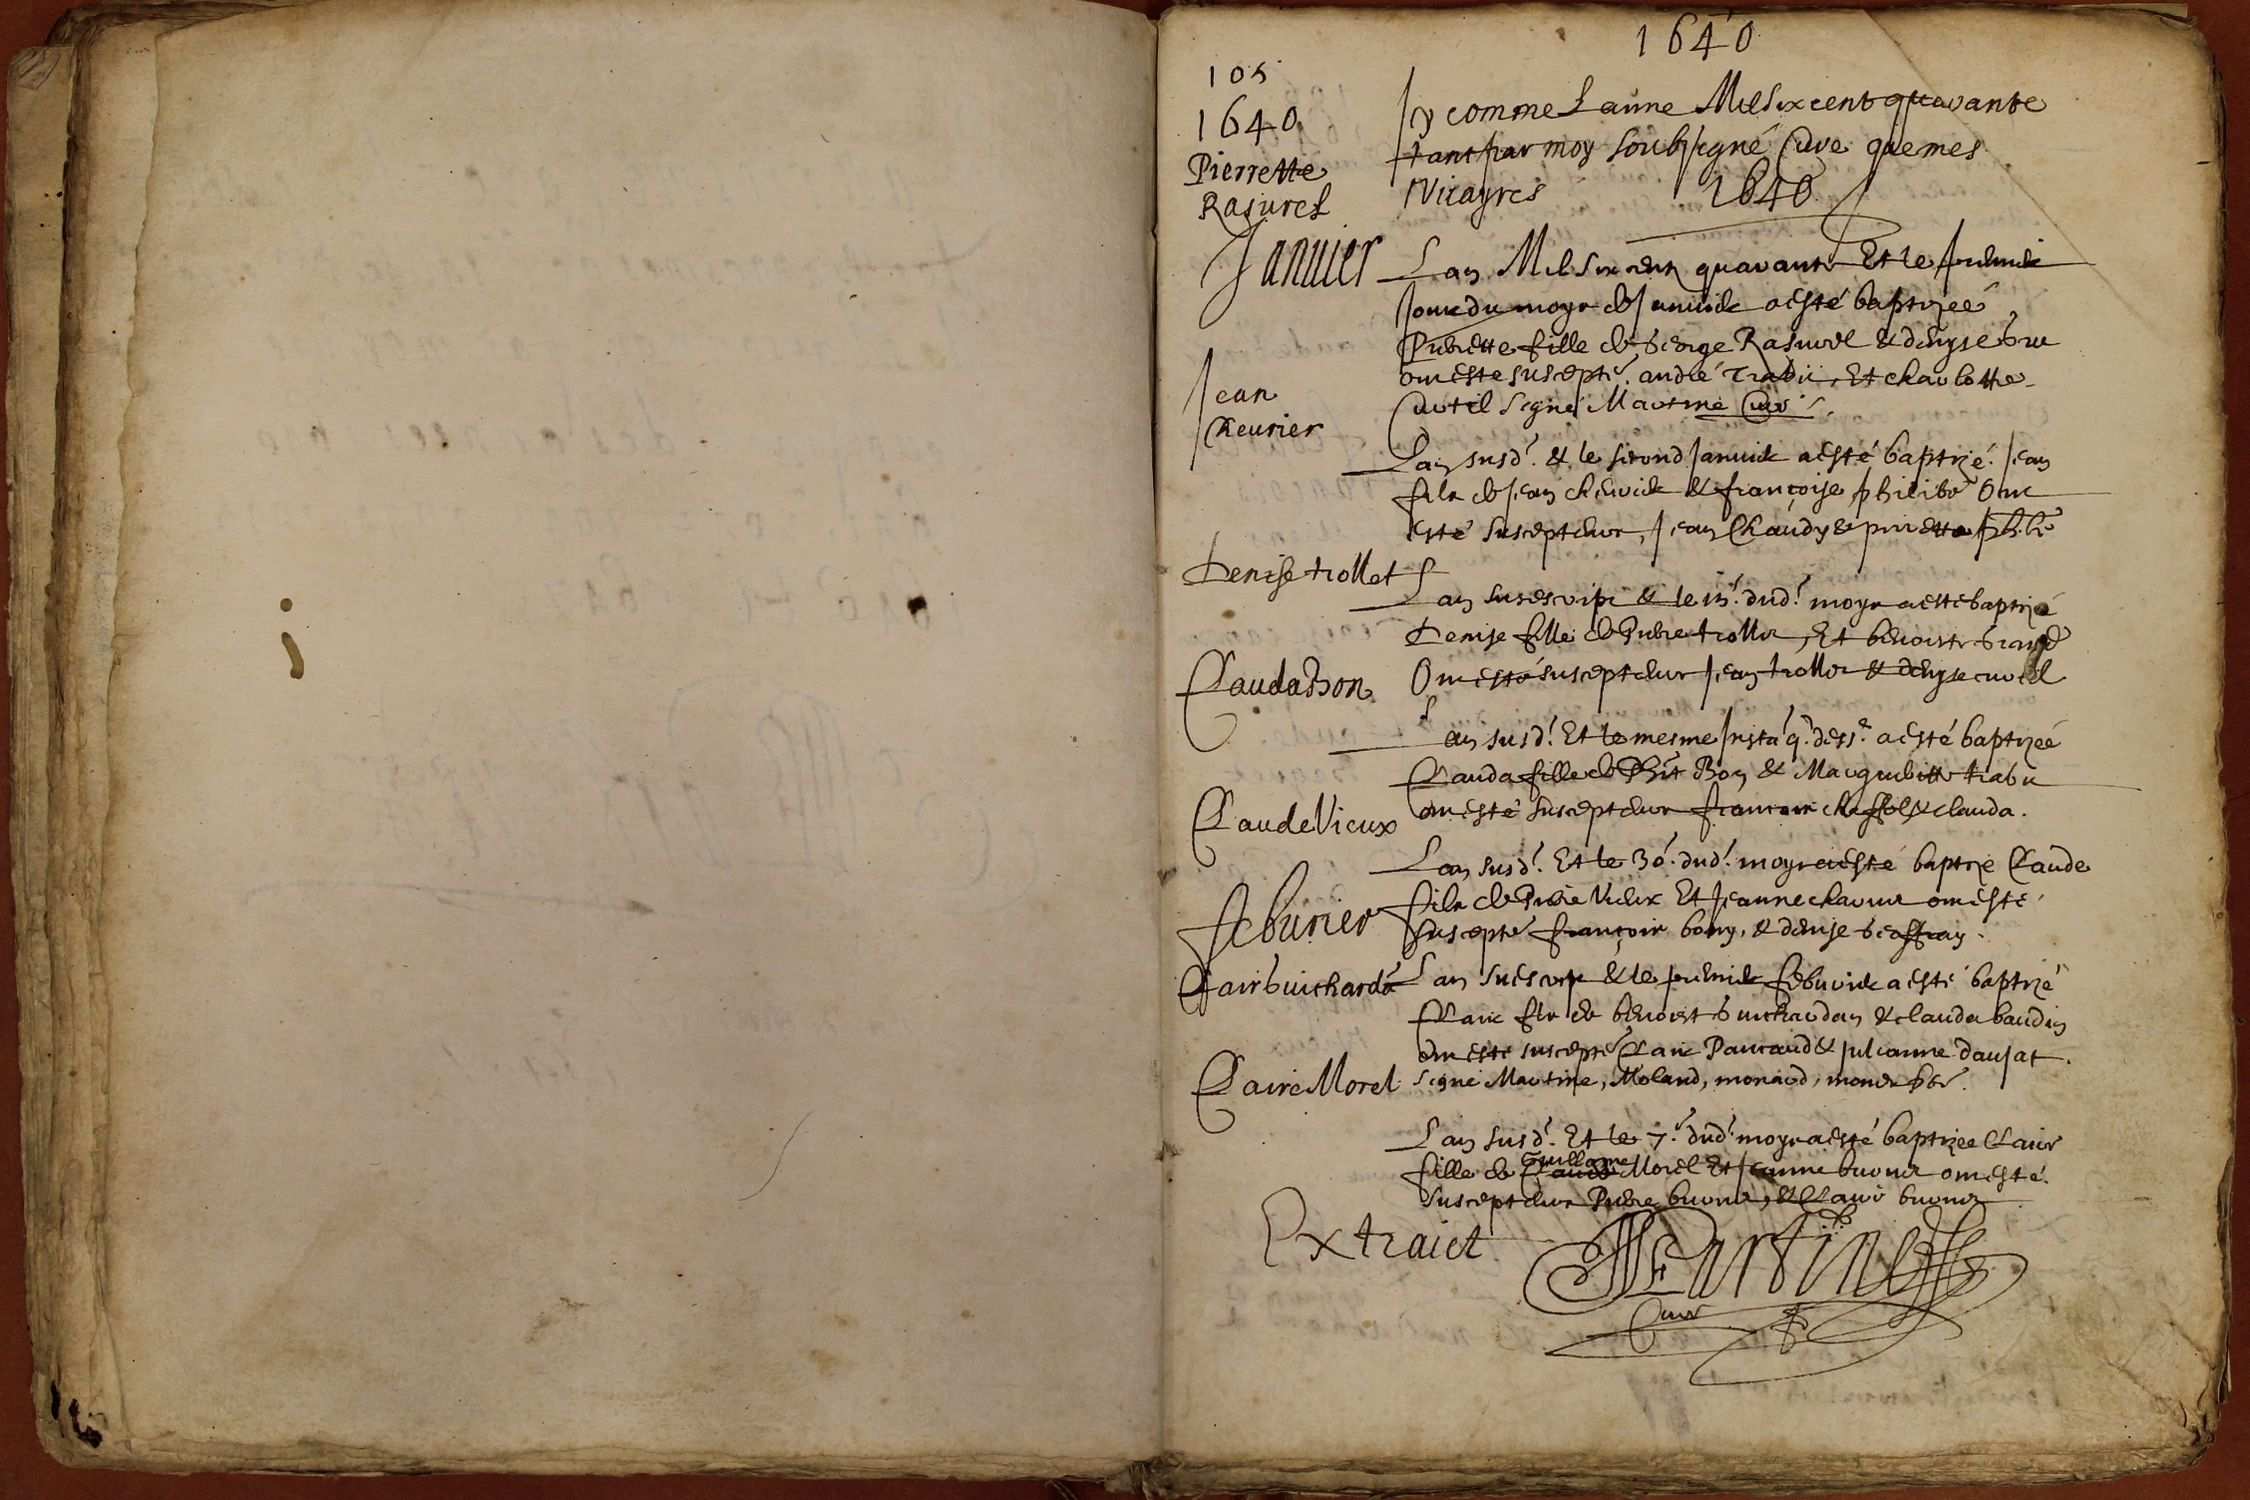 1640
105
1640
Pierrette
Rasurel
Sy comme Lanne Mil Six cent quarante
tant par moy Soubsigné Cure que mes
Vicayres 1640
Januier
Lan Mil Six cent quarante Et le premier
Jour du moys de Januier a esté baptizeé
Pierrette fille de George Rasurel & denyse
ont este suscepte. andre Trabu, Et charlotte
Curtil Signé Martine Cure
Jean
Cheurier
Lan susd. & le second Januier a esté baptizé. Jean
fils de Jean cheurier & françoise philibe Ont
esté suscepteurs, Jean Chaudy & pierrette phili
Denise trollet
Lan susescript & le 15. dud. moys a esté baptizé
Denise fille de Pierre trollet, Et benoiste Grand
Ont esté suscepteurs Jean trollet & denyse curtil
Clauda Bon
Lan susd. Et le mesme Insta q. dess. a esté baptizeé
Clauda fille de Bon & Margueritte trabu
ont esté suscepteurs francois & clauda.
Claude Vieux
Lan susd. Et le 30. dud. moys a esté baptize Claude
fils de Pierre Vieux Et Jeanne ont esté
suscepte françois bony, & denise Geoffray.
feburier
Clair Guichardã
Lan suescript & le premier feburier a esté baptizé
Clair fils de benoist Guichardan & clauda baudin
ont esté suscepte Clair Pancaud & Julianne daujat.
signé Martine, Moland, monard,
Claire Morel
Lan susd. Et le 7. dud. moys a esté baptizee Claire
Guillame
fille de Claude Morel Et Jeanne buronet ont esté.
suscepteurs Pierre buronet, & Claire buronet
Extraict
Martine
Cure